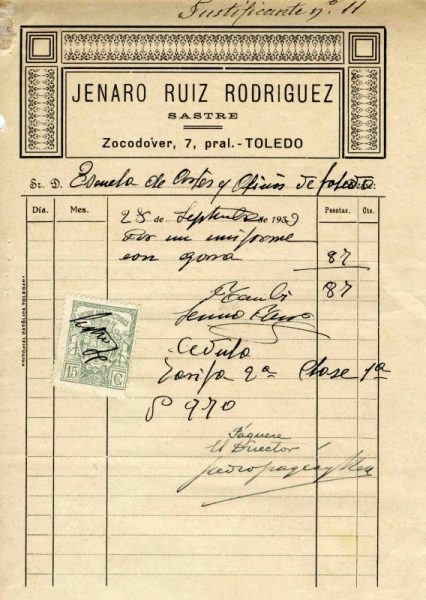 Justificante nº 11
JENARO RUIZ RODRIGUEZ
SASTRE
Zocodover, 7, pral. - TOLEDO
Sr. D. Escuela de Artes y Oficios de Toledo
Día. Mes. 28 de Septiembre de 1933 Pesetas. Cts.
Por un uniforme
con gorra 87
87
Recibí
Jenaro Ruiz
Cedula
Tarifa 2ª Clase 1ª
970
15 C
Páguese
El Director
EDITORIAL CATÓLICA TOLEDANA